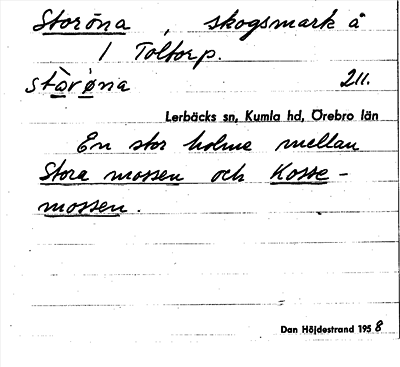 Storöna, skogsmark å
1 Toltorp.
stòrøna 211.
Lerbäcks sn, Kumla hd, Örebro län
En stor holme mellan
Stora mossen och Kosse-
mossen.
Dan Höjdestrand 1958